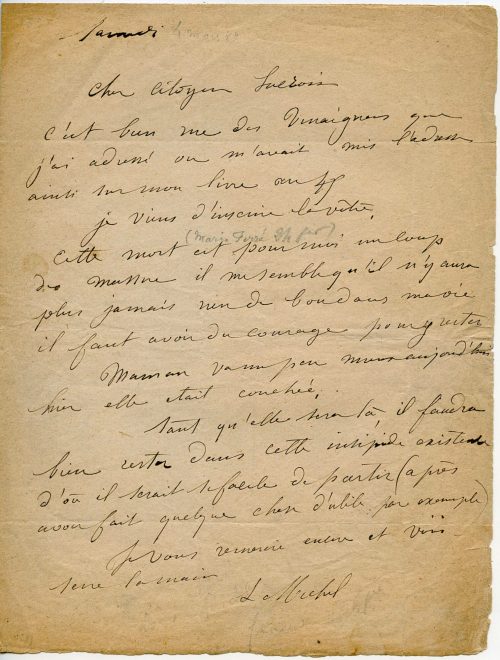 Samedi 4 mars 82
Cher Citoyen Lucroin
c'est bien rue des Vinaigriers que
j'ai adressé on m'avait mis l'adresse
ainsi sur mon livre au 45
je viens d'inscrire la vôtre.
(Marie Ferré
Cette mort est pour moi un coup
de massue il me semble qu'il n'y aura
plus jamais rien de bon dans ma vie
il faut avoir du courage pour y rester
Maman va un peu mieux aujourd'hui
hier elle était couchée.
tant qu'elle sera là il faudra
bien rester dans cette insipide existence
d'où il serait si facile de partir (après
avoir fait quelque chose d'utile par exemple)
Je vous remercie encore et vous
serre la main
L Michel